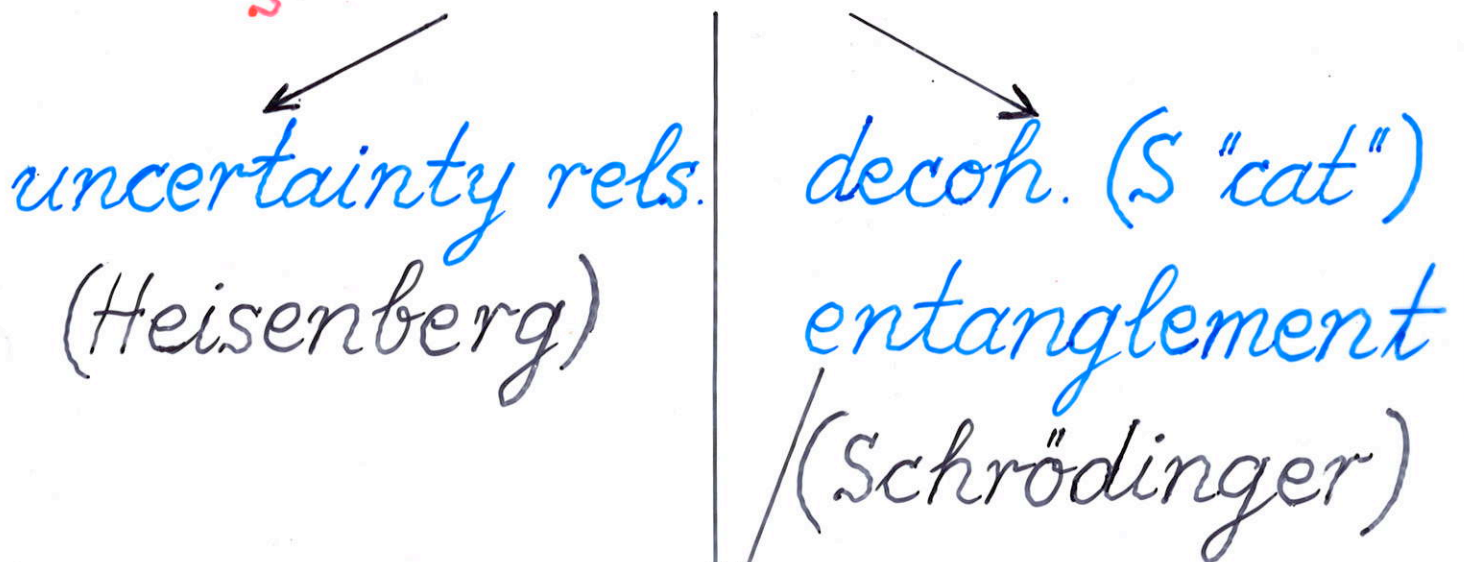 uncertainty rels.
(Heisenberg)
decoh. (S "cat")
entanglement
(Schrödinger)